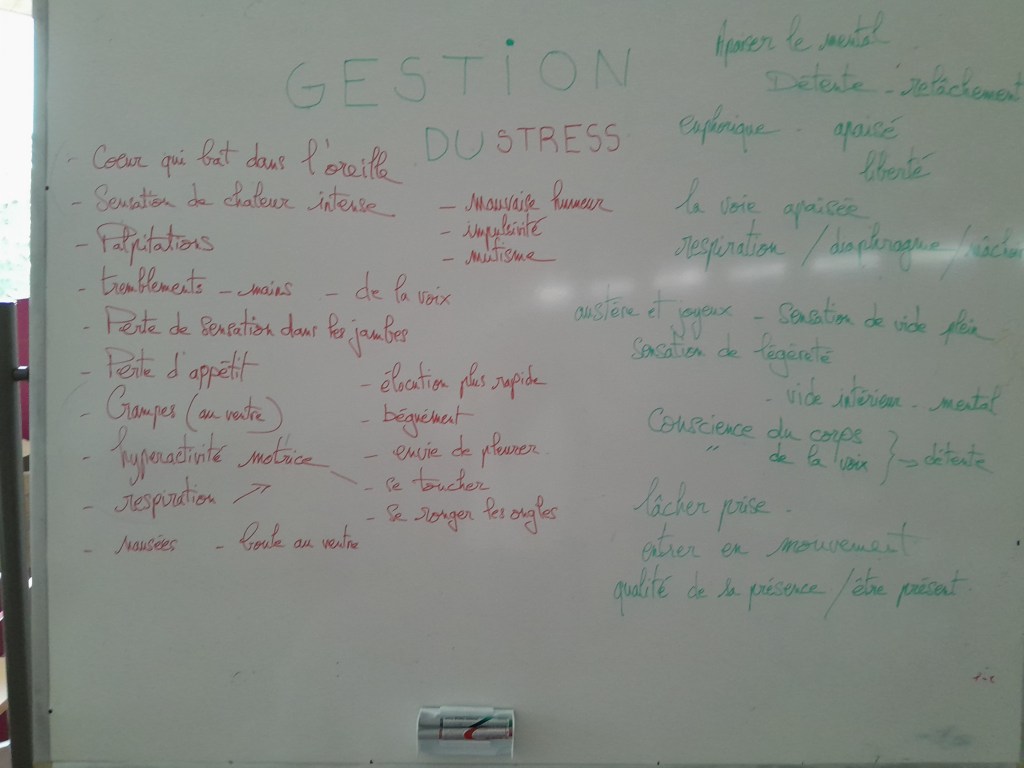 GESTION
DU STRESS
- Coeur qui bat dans l'oreille
- Sensation de chaleur intense
- Palpitations
- tremblements - mains - de la voix
- Perte de sensation dans les jambes
- Perte d'appétit
- Crampes (au ventre)
- hyperactivité motrice
- respiration ↗
- nausées - boule au ventre
- mauvaise humeur
- impulsivité
- mutisme
- élocution plus rapide
- béguément
- envie de pleurer
- se toucher
- se ronger les ongles
Apaiser le mental
Détente - relâchement
euphorique - apaisé
liberté
la voie apaisée
respiration / diaphragme /
austère et joyeux - sensation de vide plein
sensation de légèreté
- vide intérieur - mental
Conscience du corps
" de la voix } → détente
lâcher prise -
entrer en mouvement
qualité de sa présence / être présent